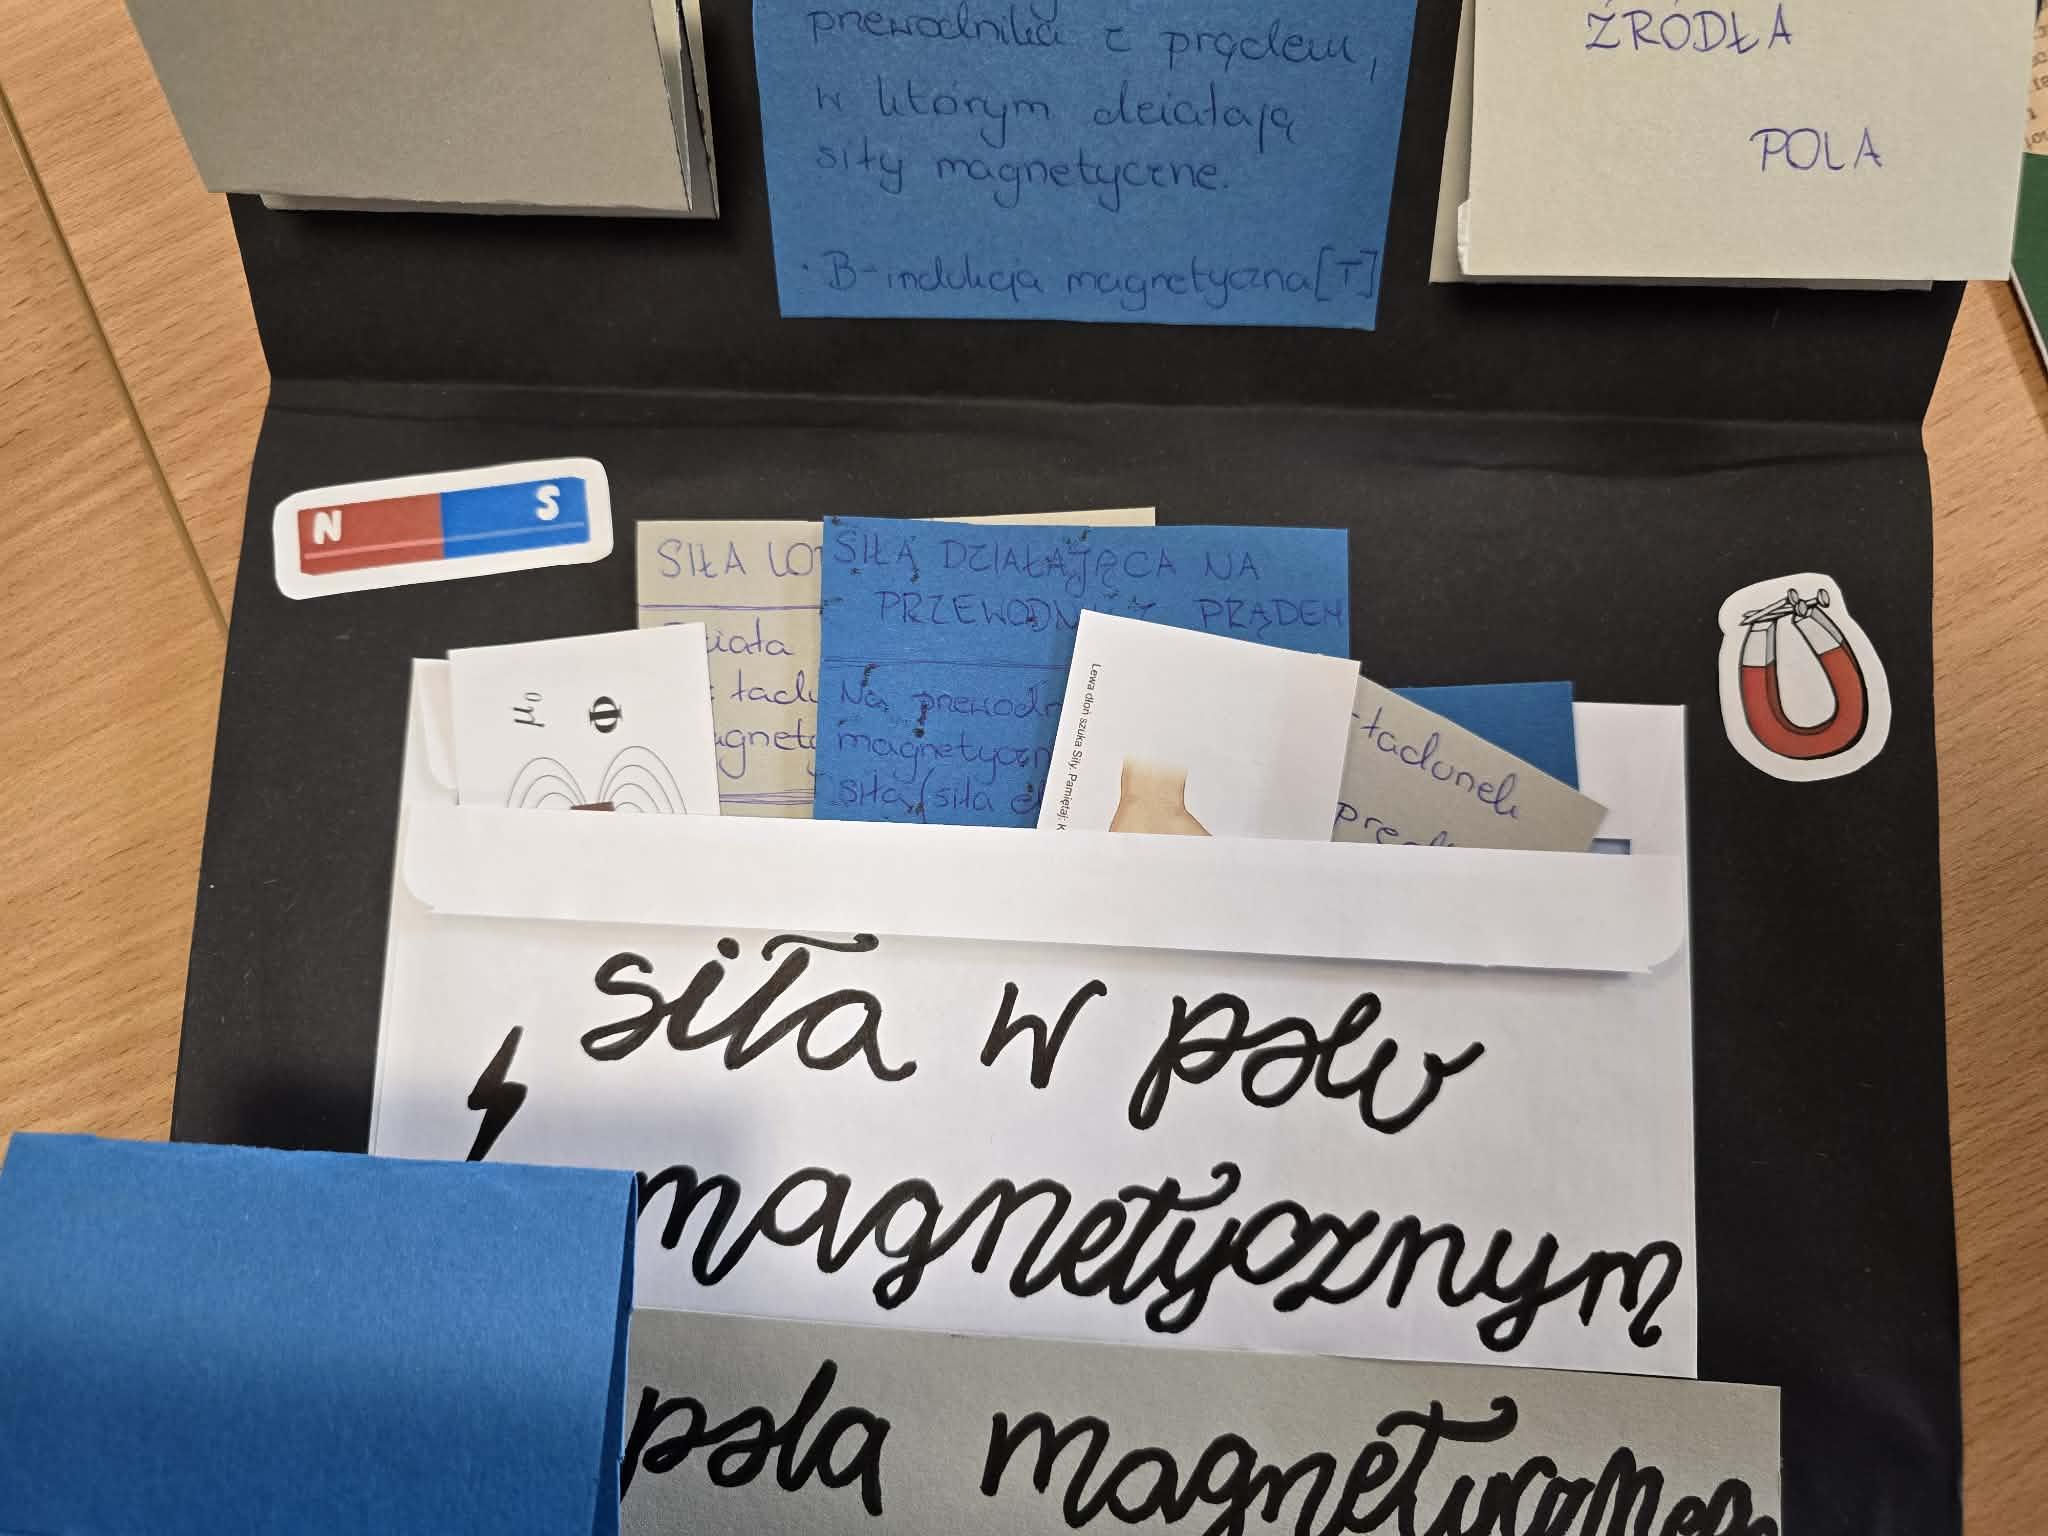 przewodnika z prądem,
w którym działają
siły magnetyczne.
· B-indukcja magnetyczna [T]
ŹRÓDŁA
POLA
N S
SIŁA LO
działa
ładu
agnety
SIŁA DZIAŁAJĄCA NA
PRZEWODNI Z PRĄDEM
Na przewodn
magnetyczn
siła (siła el
μ₀
Φ
Lewa dłoń szuka Siły. Pamiętaj: K
ładunek
pręd
siła w polu
magnetycznym
pola magnetycznego